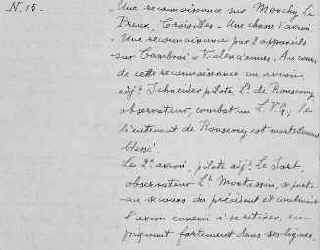 N. 15.
- Une reconnaissance sur Monchy le
Preux, Croisilles. - Une chasse 1 avion.
- Une reconnaissance par 2 appareils
sur Cambrai & Valenciennes. Au cours
de cette reconnaissance un avion
adjt Schneider pilote Lt de Ronseray
observateur, combat un L.V.G., le
lieutenant de Ronseray est mortellement
blessé
Le 2e avion, pilote adjt Le Sort,
observateur Lt Montessin, se porte
au secours du précédent et contraint
l'avion ennemi à se retirer, en
piquant fortement dans ses lignes.